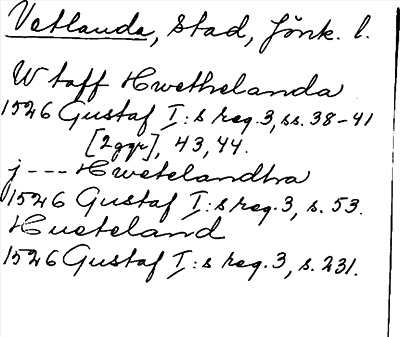 Vetlanda, stad, Jönk. l.
W taff Hwethelanda
1526 Gustaf I:s reg. 3, ss. 38-41
[2ggr], 43, 44.
j --- Hwetelandha
1526 Gustaf I:s reg. 3, s. 53.
Hueteland
1526 Gustaf I:s reg. 3, s. 231.